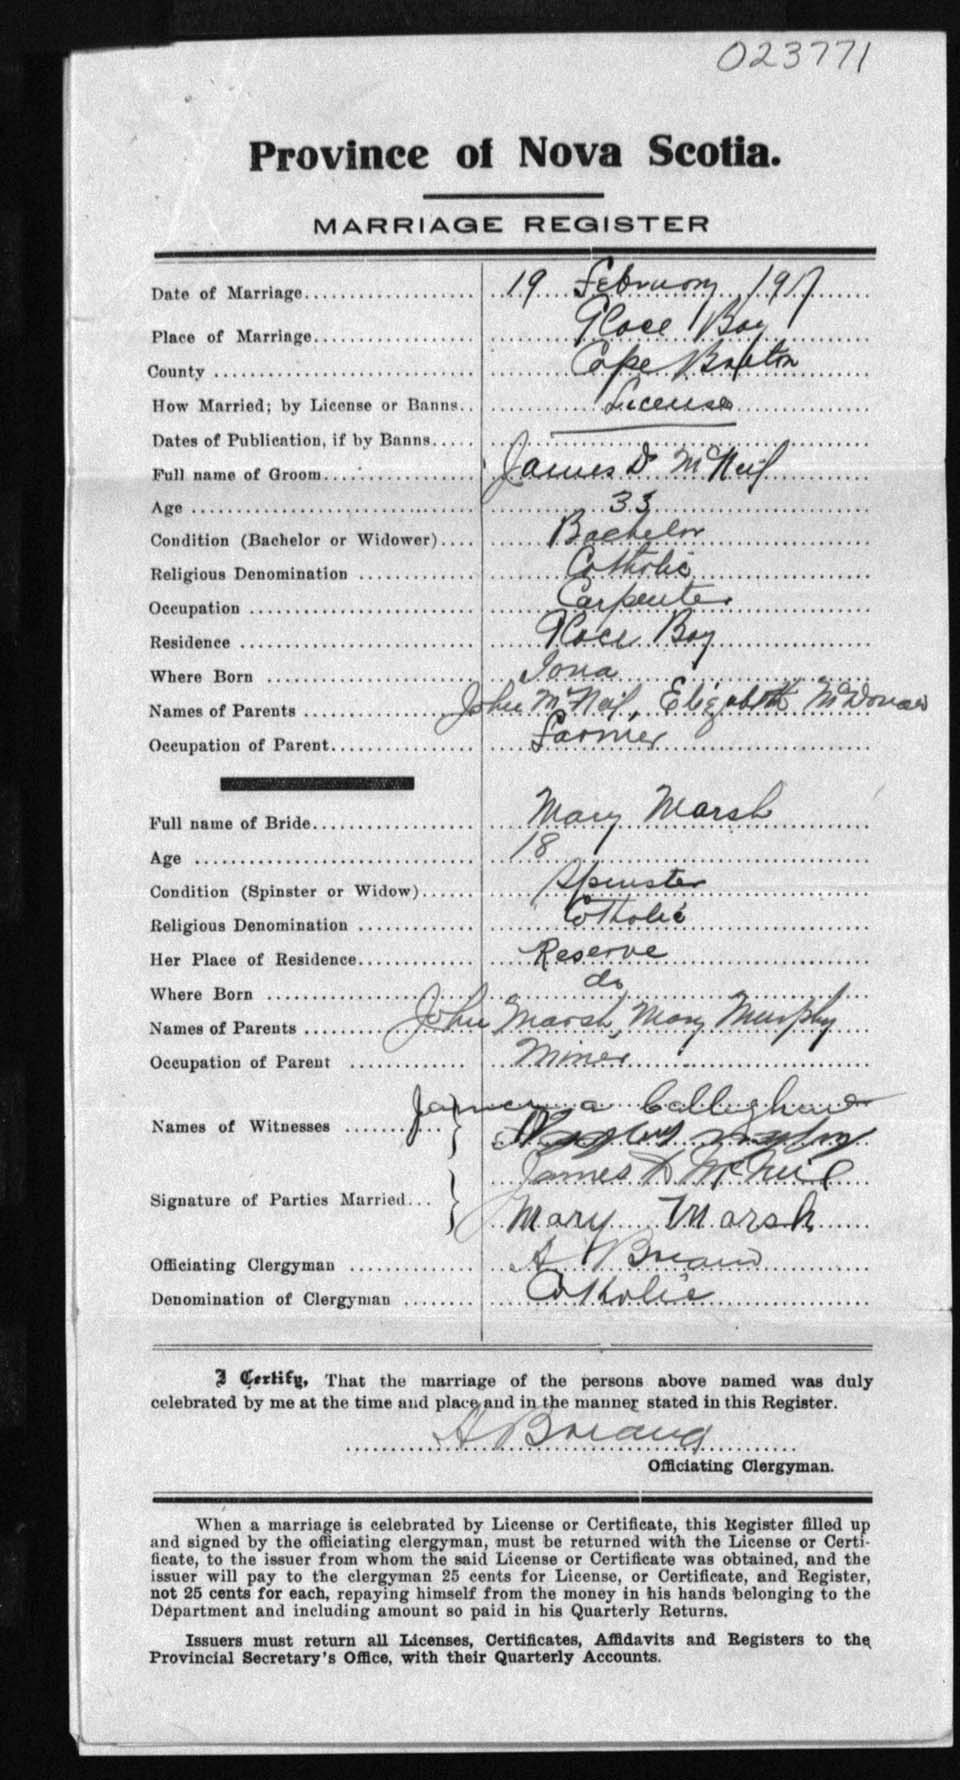 023771
Province of Nova Scotia.
MARRIAGE REGISTER
Date of Marriage 19 February 1917
Place of Marriage Glace Bay
County Cape Breton
How Married; by License or Banns License
Dates of Publication, if by Banns
Full name of Groom James D McNeil
Age 33
Condition (Bachelor or Widower) Bachelor
Religious Denomination Catholic
Occupation Carpenter
Residence Glace Bay
Where Born Iona
Names of Parents John McNeil, Elizabeth McDonald
Occupation of Parent Farmer
Full name of Bride Mary Marsh
Age 18
Condition (Spinster or Widow) Spinster
Religious Denomination Catholic
Her Place of Residence Reserve
Where Born do
Names of Parents John Marsh, Mary Murphy
Occupation of Parent Miner
Names of Witnesses James a
Signature of Parties Married James D McNeil
Mary Marsh
Officiating Clergyman A
Denomination of Clergyman Catholic
I Certify, That the marriage of the persons above named was duly
celebrated by me at the time and place and in the manner stated in this Register.
A
Officiating Clergyman.
When a marriage is celebrated by License or Certificate, this Register filled up
and signed by the officiating clergyman, must be returned with the License or Certi-
ficate, to the issuer from whom the said License or Certificate was obtained, and the
issuer will pay to the clergyman 25 cents for License, or Certificate, and Register,
not 25 cents for each, repaying himself from the money in his hands belonging to the
Department and including amount so paid in his Quarterly Returns.
Issuers must return all Licenses, Certificates, Affidavits and Registers to the
Provincial Secretary's Office, with their Quarterly Accounts.